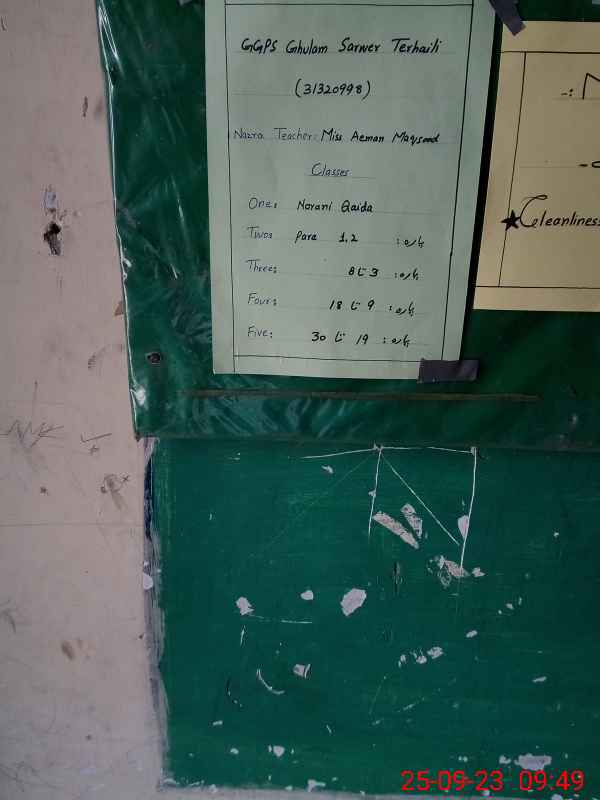 GGPS Ghulam Sarwer Terhaili
(31320998)
Nazra Teacher: Miss Aeman Maqsood
Classes
One: Norani Qaida
Two: Para 1,2 پارہ:
Three: پارہ: 3 تا 8
Four: پارہ: 9 تا 18
Five: پارہ: 19 تا 30
★ Cleanliness
25-09-23 09:49